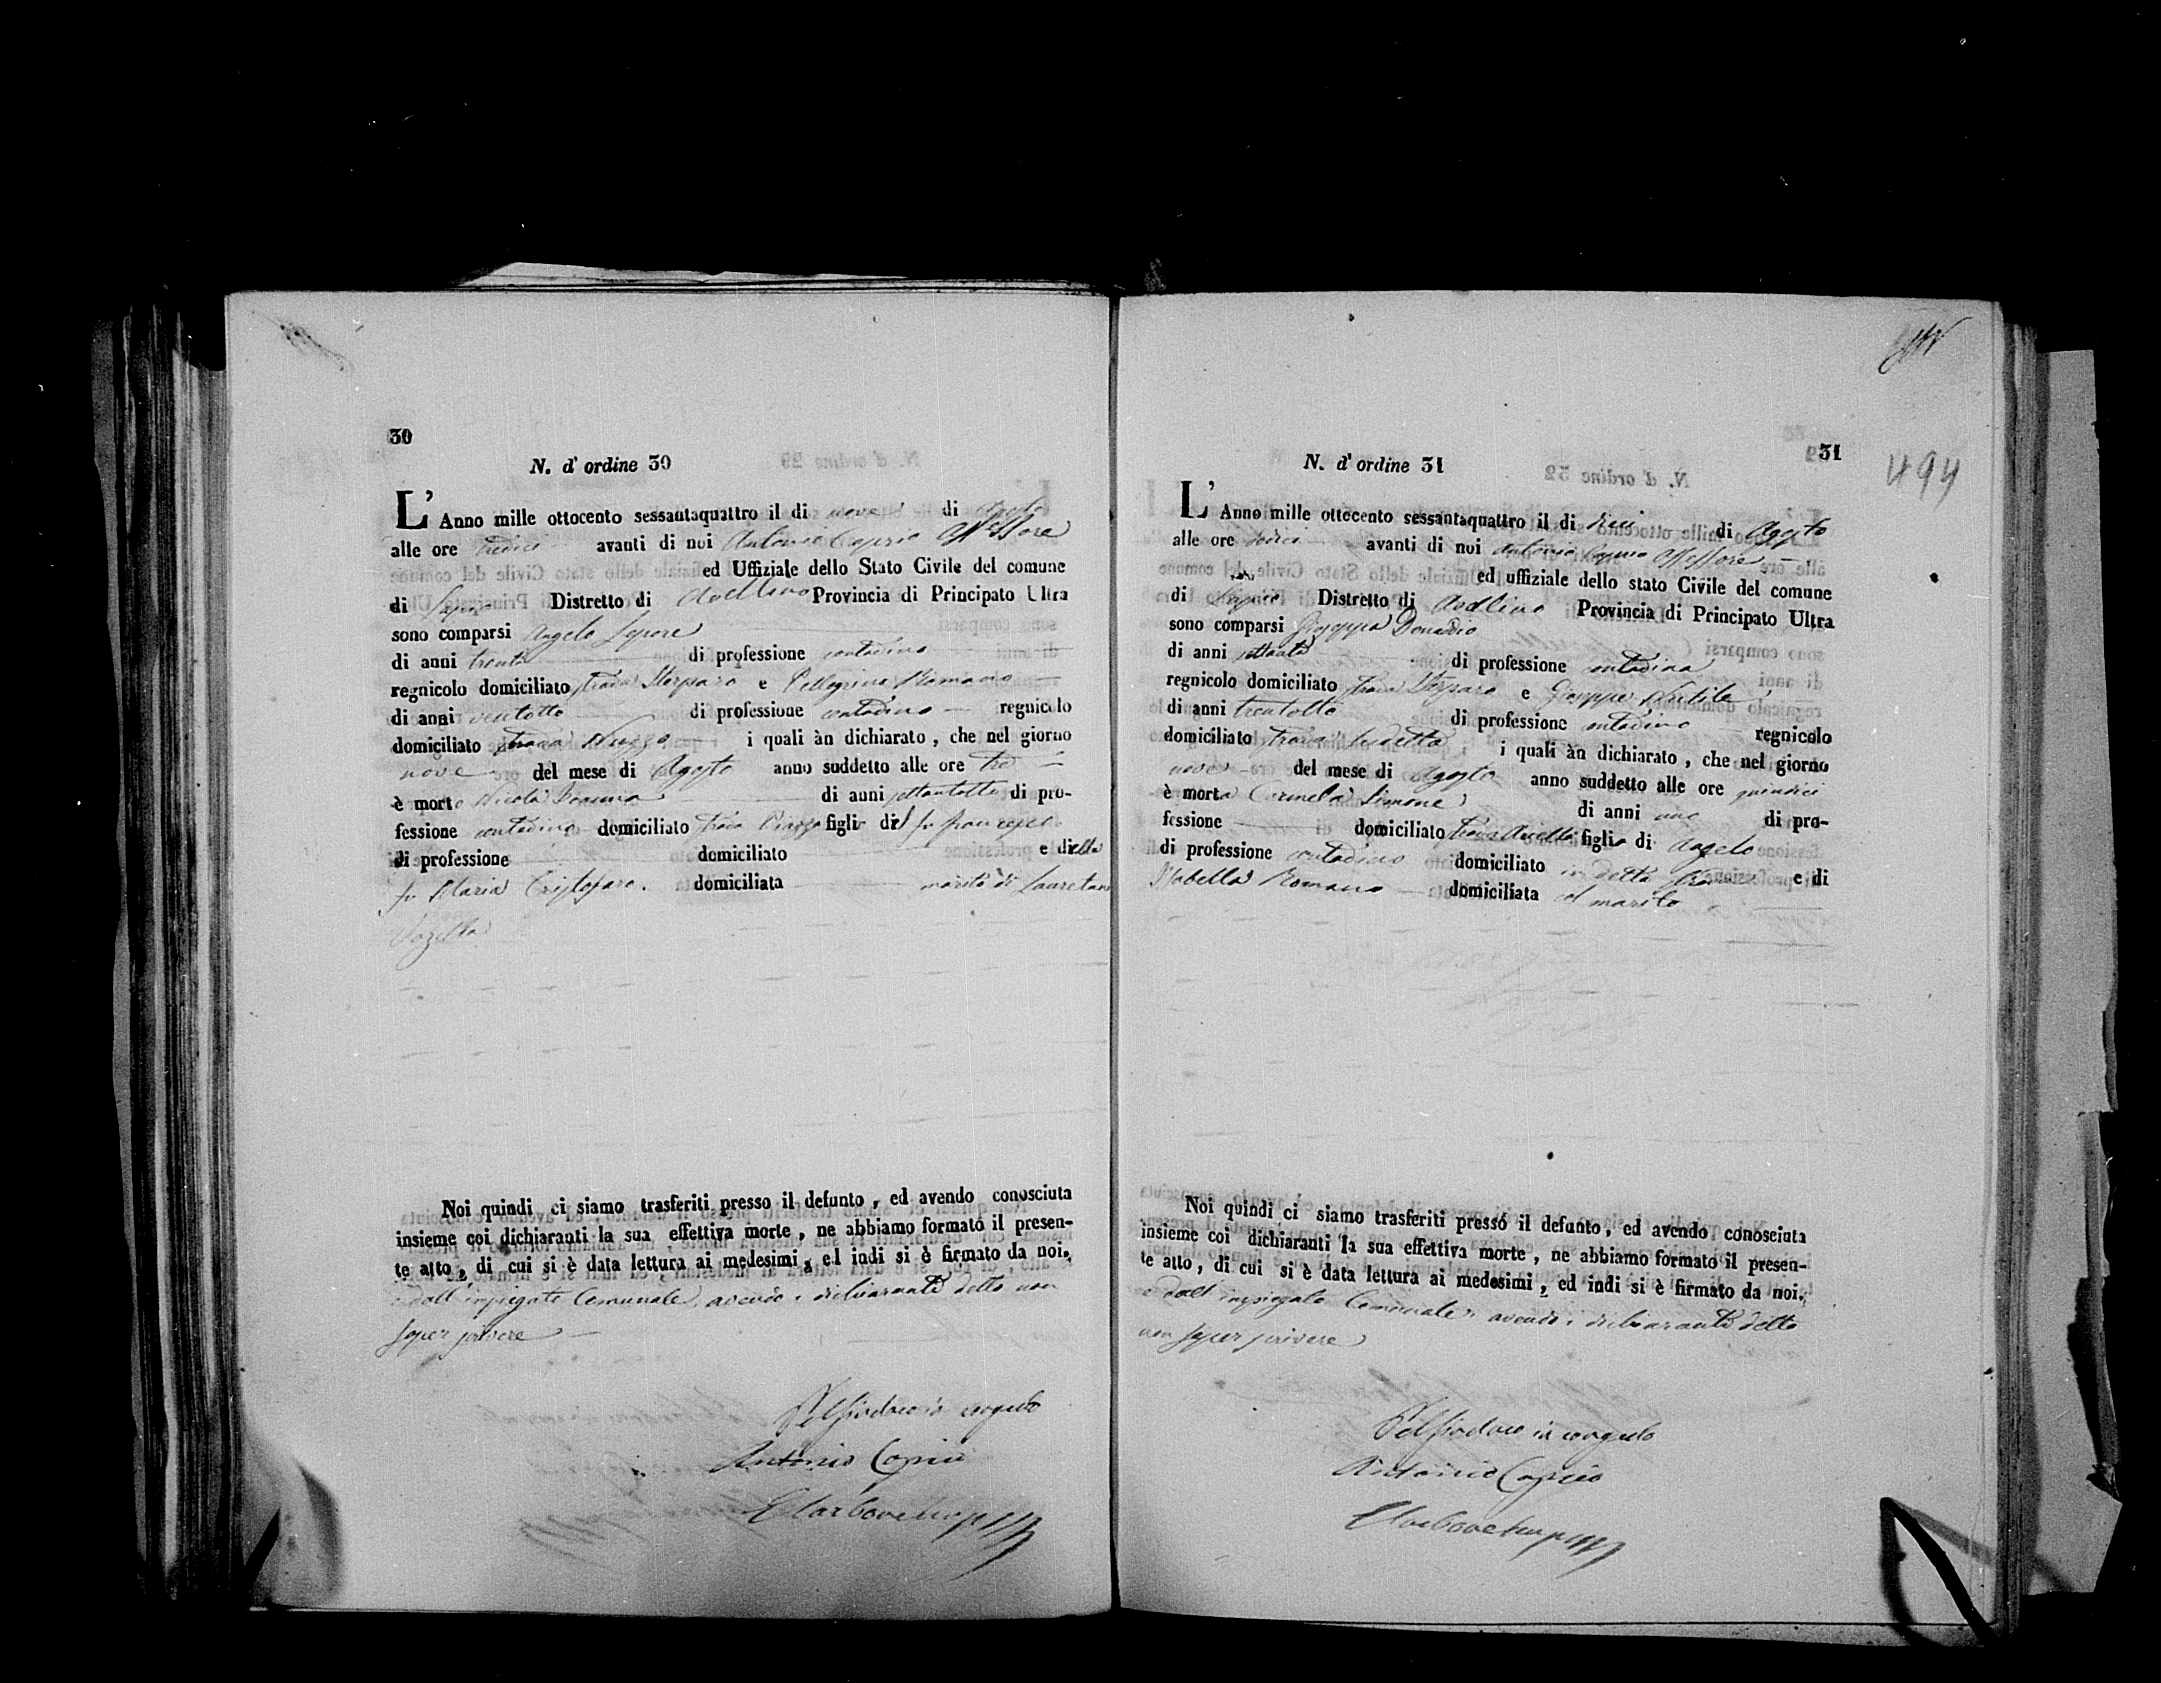 30
N. d' ordine 30
L' Anno mille ottocento sessantaquattro il di nove di Agosto
alle ore tredici avanti di noi Antonio Caprio Assessore
ed Uffiziale dello Stato Civile del comune
di Distretto di Avellino Provincia di Principato Ultra
sono comparsi Angelo Lepore
di anni trenta di professione contadino
regnicolo domiciliato strada e Pellegrino Romano
di anni ventotto di professione contadino regnicolo
domiciliato strada i quali àn dichiarato, che nel giorno
nove del mese di Agosto anno suddetto alle ore tre
è morto Nicola di anni settantotto di pro-
fessione contadino domiciliato strada Piazza figlio del fu Francesco
di professione domiciliato e della
fu Maria Cristofaro. domiciliata marito di Lauretana
Noi quindi ci siamo trasferiti presso il defunto, ed avendo conosciuta
insieme coi dichiaranti la sua effettiva morte, ne abbiamo formato il presen-
te atto, di cui si è data lettura ai medesimi, ed indi si è firmato da noi,
e dall'impiegato Comunale, avendo i dichiaranti detto non
saper scrivere
Pel Sindaco in congedo
Antonio Caprio
31
494
N. d' ordine 31
L' Anno mille ottocento sessantaquattro il di dieci di Agosto
alle ore avanti di noi Antonio Caprio Assessore
ed uffiziale dello stato Civile del comune
di Distretto di Avellino Provincia di Principato Ultra
sono comparsi Giuseppa Donadio
di anni settanta di professione contadina
regnicolo domiciliato strada e Giuseppe Nutile
di anni trentotto di professione contadino regnicolo
domiciliato strada sudetta i quali àn dichiarato, che nel giorno
nove del mese di Agosto anno suddetto alle ore quindici
è morta Carmela Simone di anni uno di pro-
fessione domiciliato strada figlia di Angelo
di professione contadino domiciliato in detta strada e di
Isabella Romano domiciliata col marito
Noi quindi ci siamo trasferiti presso il defunto, ed avendo conosciuta
insieme coi dichiaranti la sua effettiva morte, ne abbiamo formato il presen-
te atto, di cui si è data lettura ai medesimi, ed indi si è firmato da noi,
e dall'impiegato Comunale, avendo i dichiaranti detto
non saper scrivere
Pel Sindaco in congedo
Antonio Caprio